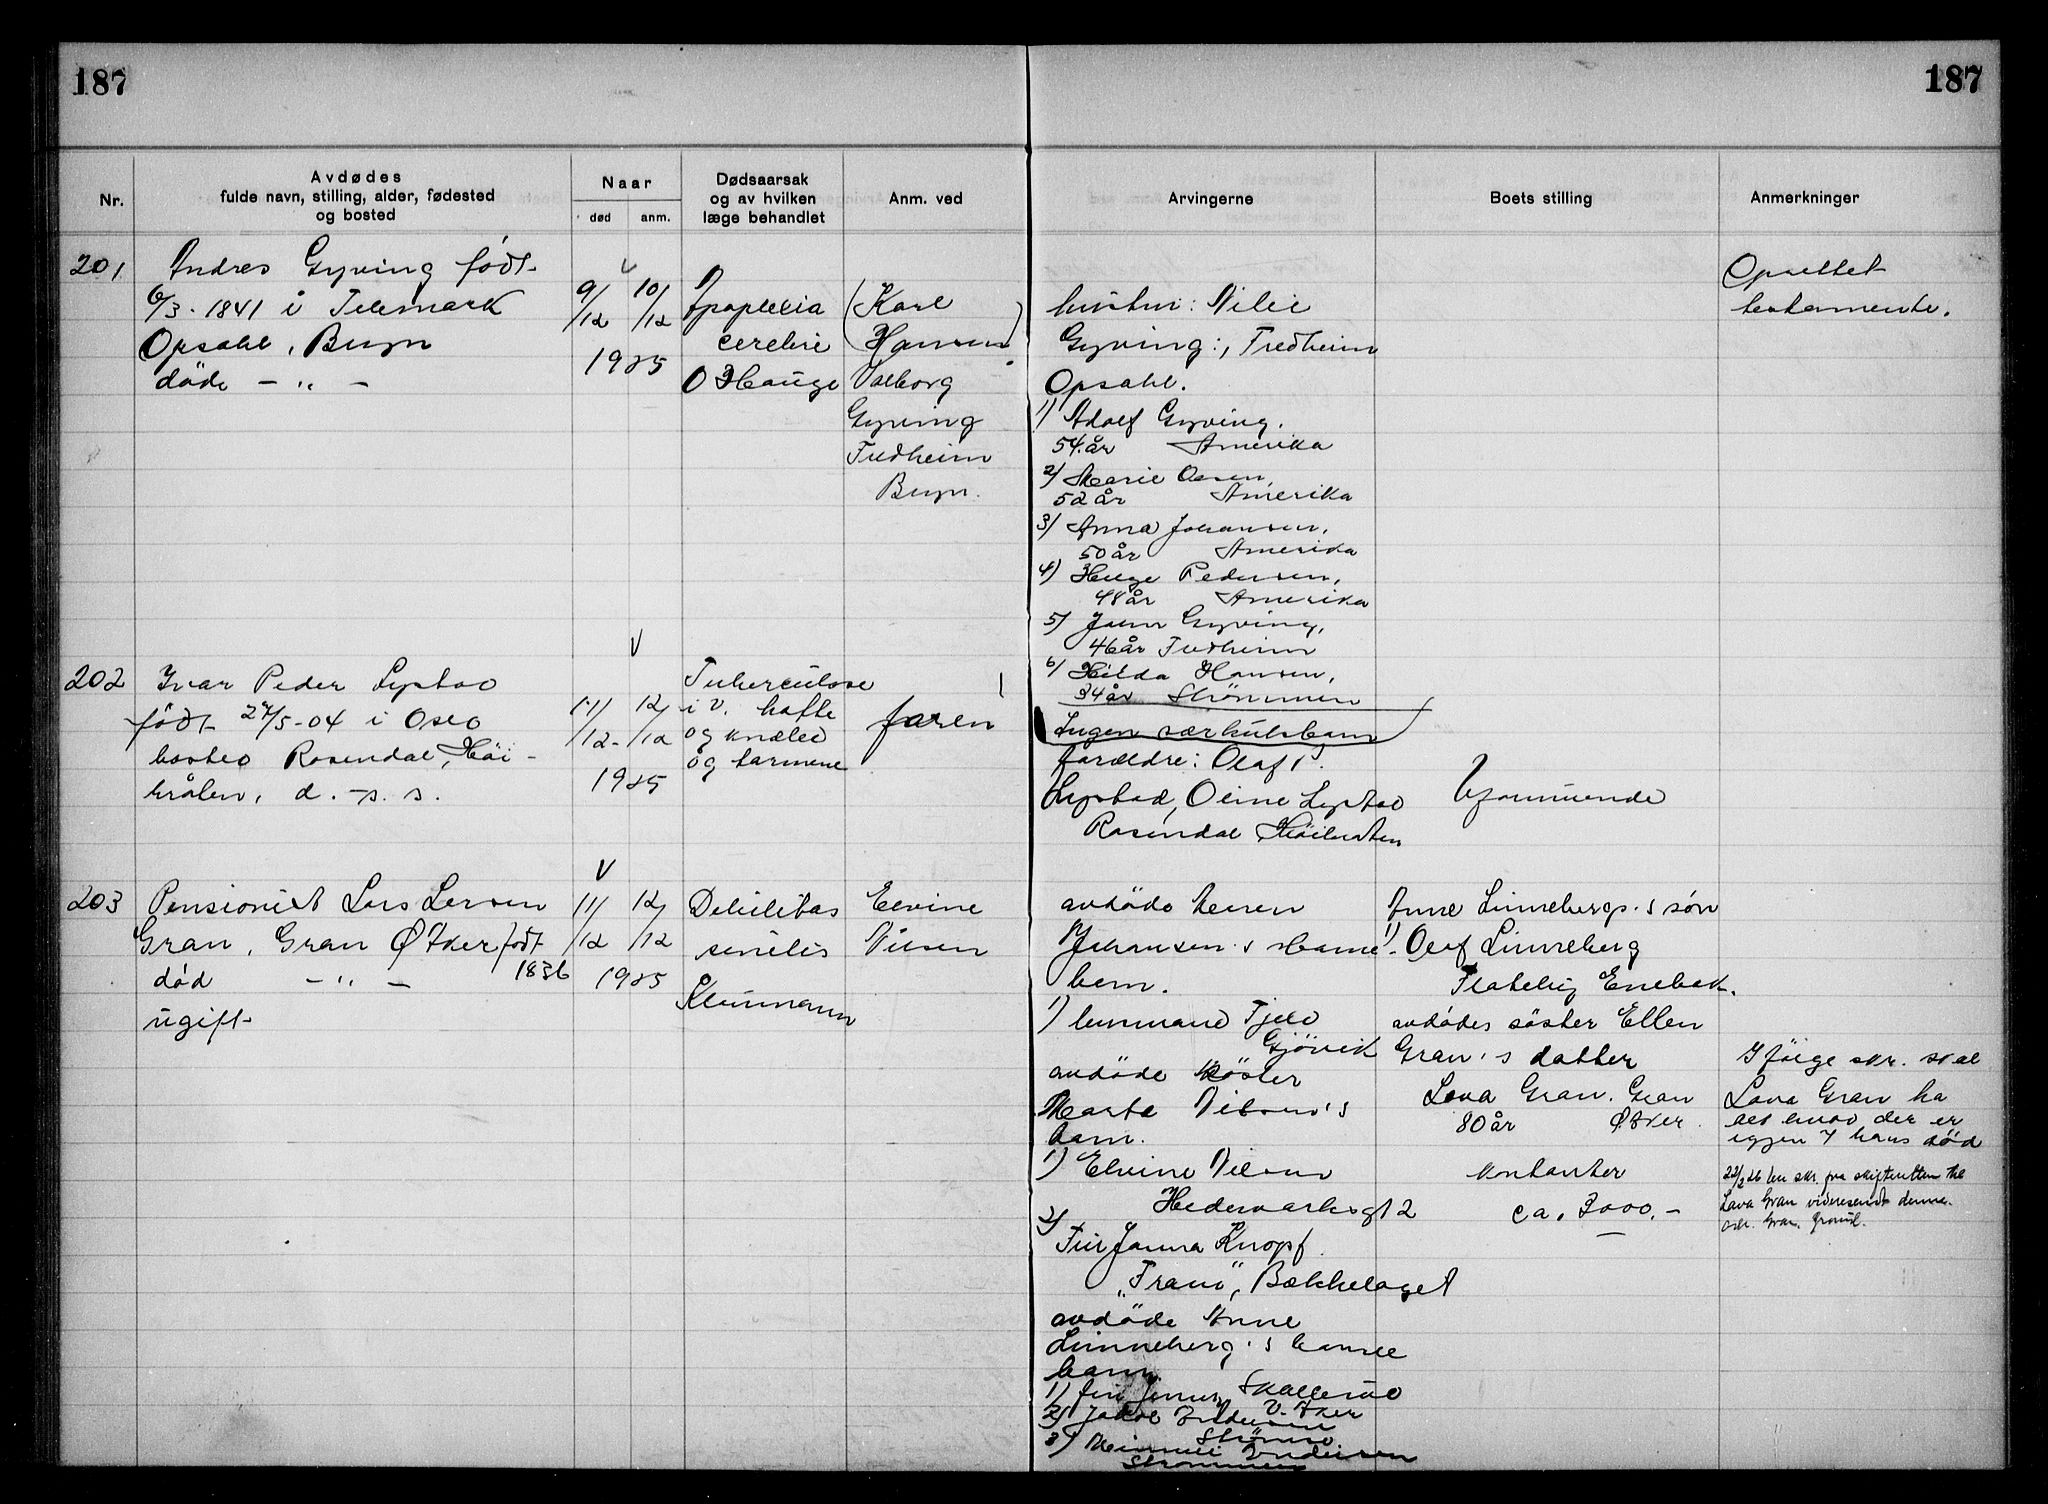 187
187
Nr.
Avdødes
fulde navn, stilling, alder, fødested
og bosted
Naar
død
anm.
Dødsaarsak
og av hvilken
læge behandlet
Anm. ved
Arvingerne
Boets stilling
Anmerkninger
201
Andres Gyving født
6/3-1841 i Telemark
Opsahl, Bryn
döde - " -
9/12
10/12
1925
Apoplexia
cerebri
O Hauge
(Karl
Hansen)
Valborg
Gyving
Fredheim
Bryn.
hustru:
Gyving:, Fredheim
Opsahl.
1) Adolf Gyving,
54 år Amerika
2) Marie Olsen,
52 år Amerika
3) Anna Johansen,
50 år Amerika
4) Helge Pedersen,
48 år Amerika
5) John Gyving,
46 år Fredheim
6) Hilda Hansen,
34 år Strömmen
Ingen særkulsbarn
Oprettet
testamente.
202
Ivar Peder Lystad
født 27/5-04 i Oslo
bosted Rosendal, Höi-
bråten, d. s. s.
11/12-
12/12
1925
Tuberculose
i v. hofte
og knæled
og tarmene
faren
forældre: Olaf P.
Lystad, Oline Lystad
Rosendal Höibråten
Uformuende
203
Pensionist Lars Larsen
Gran, Gran Ø Aker født
1836
död - " -
ugift
11/12
12/12
1925
Debilitas
senilis
Elvine
Nilsen
avdöde
Johansen's
barn.
1) Tjeld
Gjövik
avdöde söster
Marte Nilsen's
barn.
1) Elvine Nilsen
Hedemarksgt 2
2) Fru Janna Knopf
"Fram", Bækkelaget
avdöde Anne
Linneberg's
barn
1) fru Jensen, Skallerud
V. Aker
2) Jakob Andersen
Strömmen
3) Andersen
Strömmen
Anne Linneberg's sön
1) Olaf Linneberg
Flateby Enebak.
avdödes söster Ellen
Gran's datter
Lova Gran. Gran
80 år Ø. Aker.
kontanter
ca. 3000,-
Ifölge skr. skal
Lova Gran ha
alt hvad der er
igjen e/ hans död
22/2 26 skr. fra skifteretten til
Lova Gran videresendt denne.
adr. Gran,